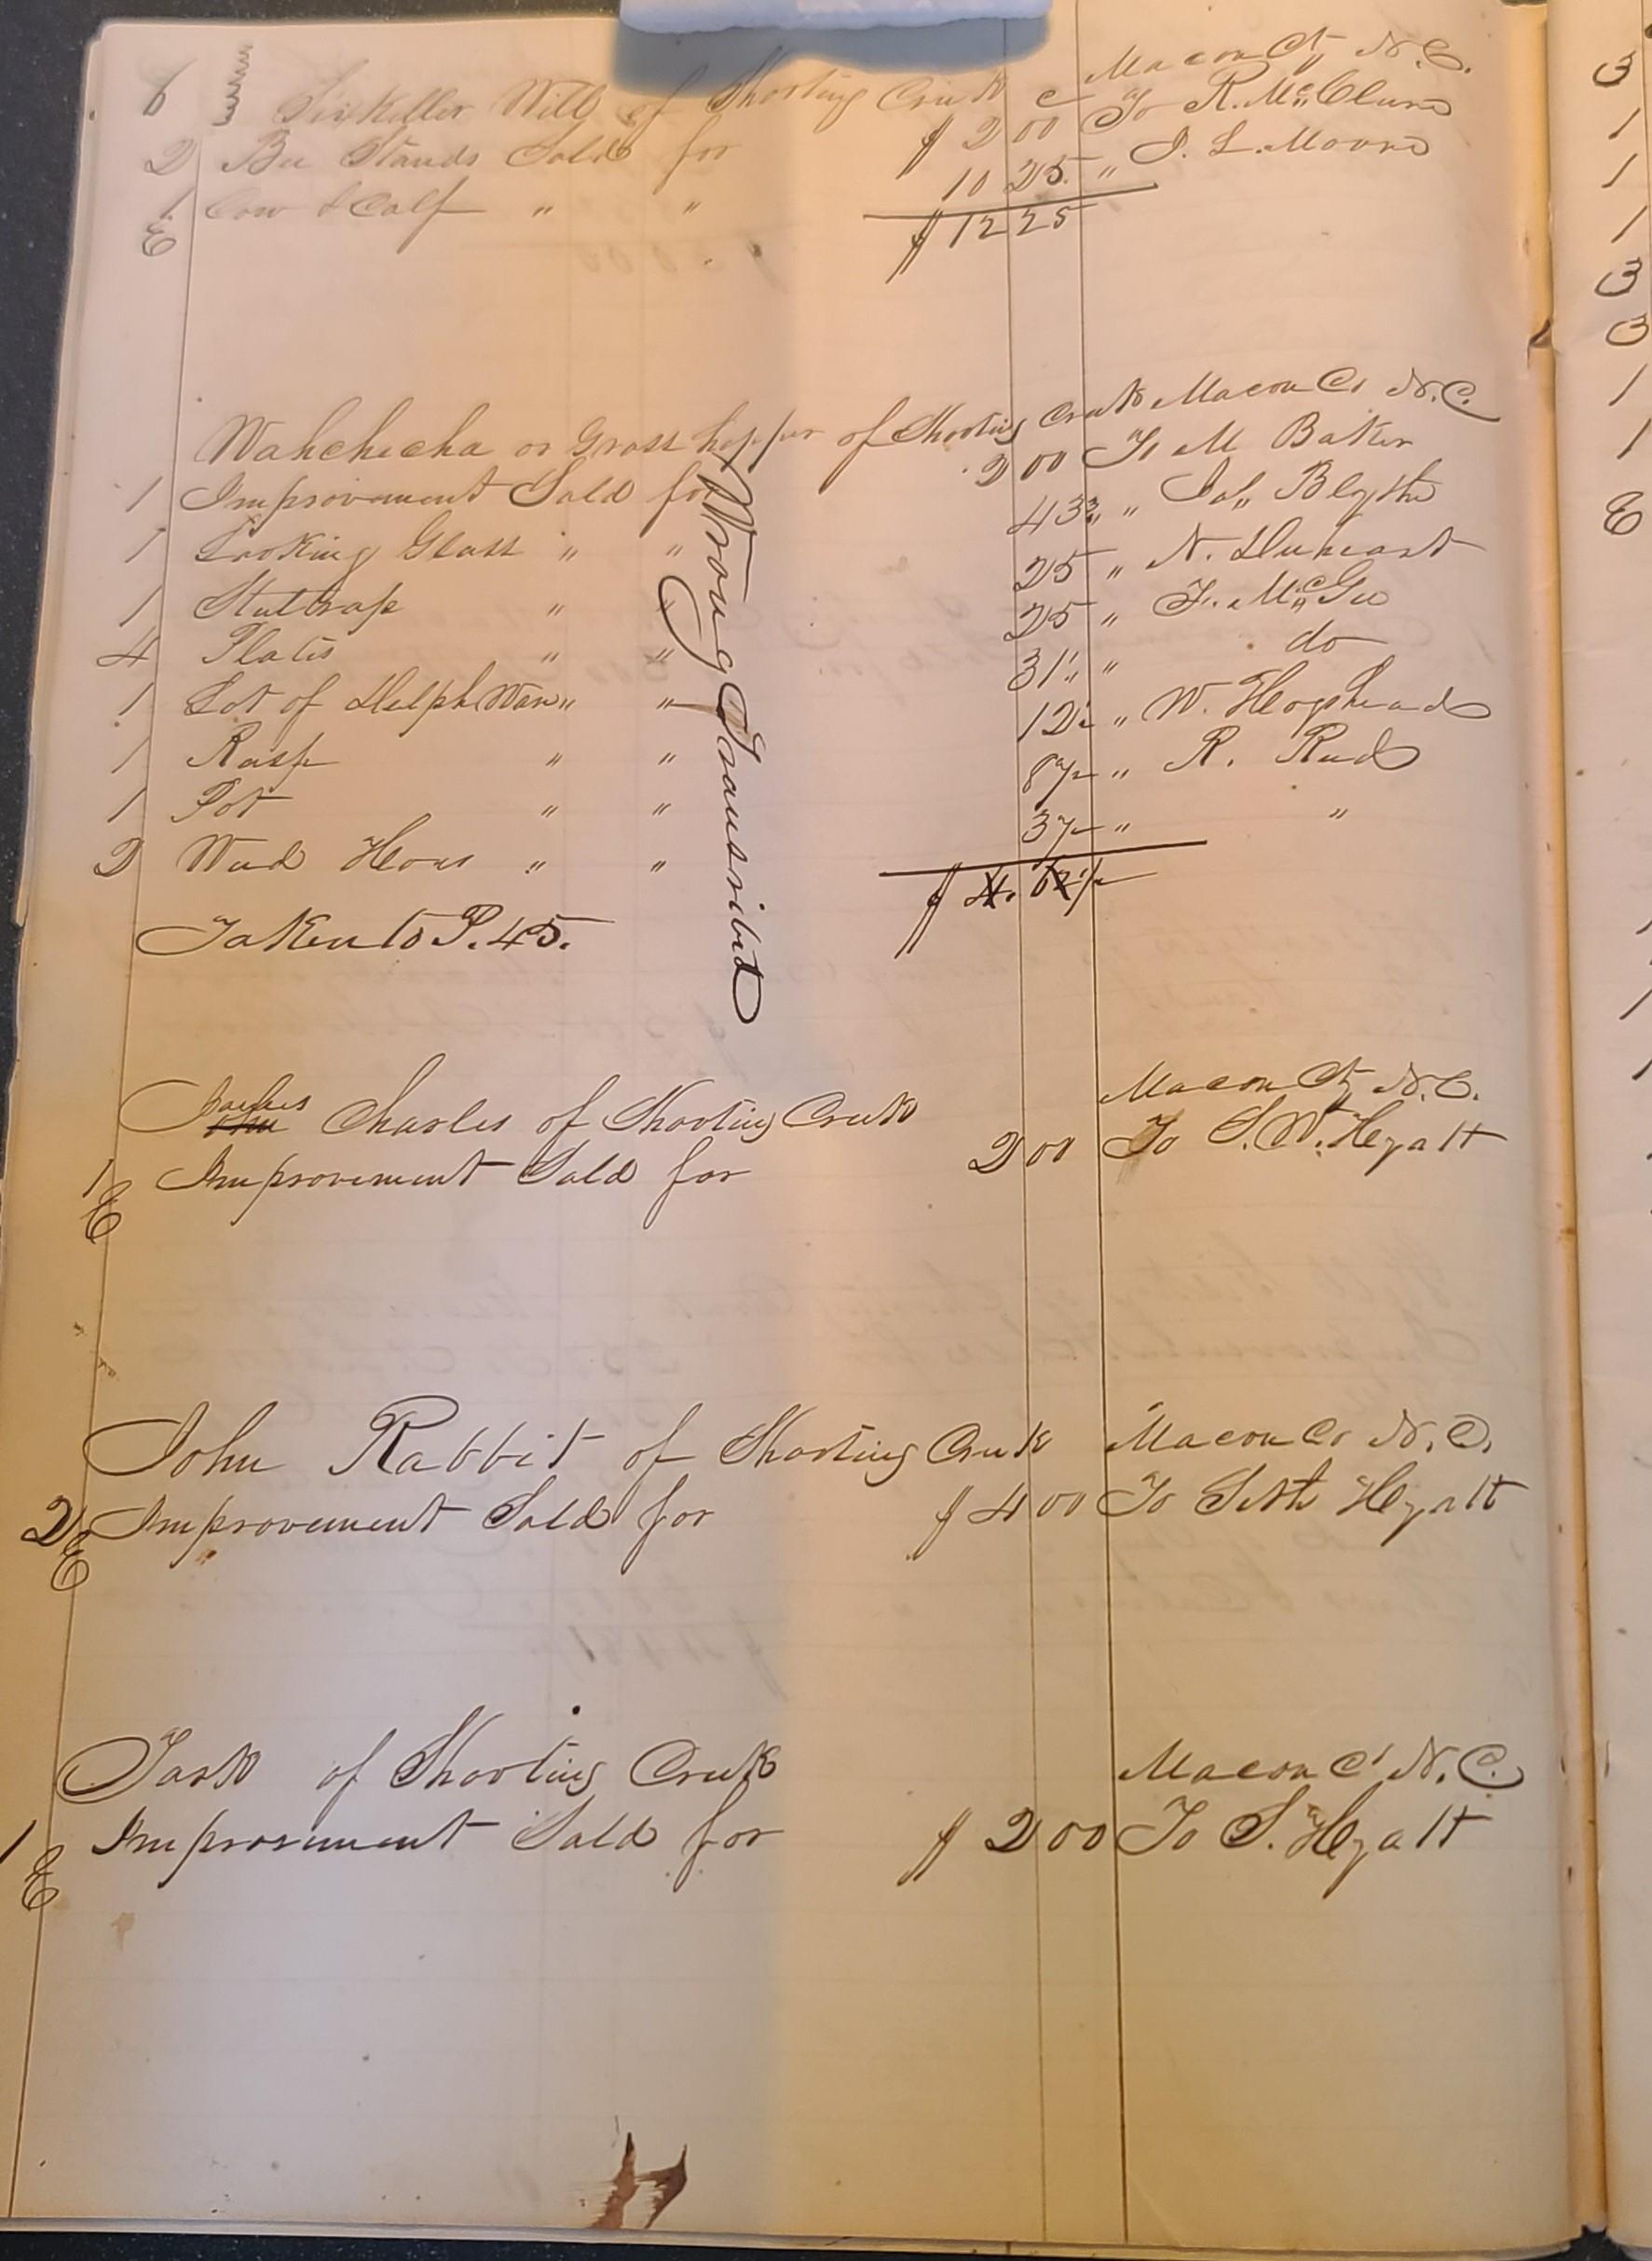 6 Sixkiller Will of Shooting Creek Macon Cty N.C.
2 Bee Stands Sold for $ 2 00 To R. McClure
1 Cow & Calf " " 10 25 " J. L. Moore
E $ 12 25
Wahchecha or Grass hopper of Shooting Creek Macon Co N.C.
1 Improvement Sold for 2 00 To M Baker
1 Looking Glass " " 43¾ " Jas Blythe
1 Steeltrap " " 25 " N.
4 Plates " " 25 " F. McGee
1 Lot of Delph Ware " " 31¼ " do
1 Rasp " " 12½ " W. Hogshead
1 Pot " " 87½ " R. Reed
2 Weed Hoes " " 37½ " "
$ 4. 62½
Taken to P. 45.
Wrong Transribed
James Charles of Shooting Creek Macon Cty N.C.
1 Improvement Sold for 2 00 To S. W. Hyatt
E
John Rabbit of Shooting Creek Macon Co N.C.
2 Improvement Sold for $ 4 00 To Seth Hyatt
E
of Shooting Creek Macon Co N.C.
1 Improvement Sold for $ 2 00 To S. Hyatt
E
3
1
1
1
3
3
1
1
E